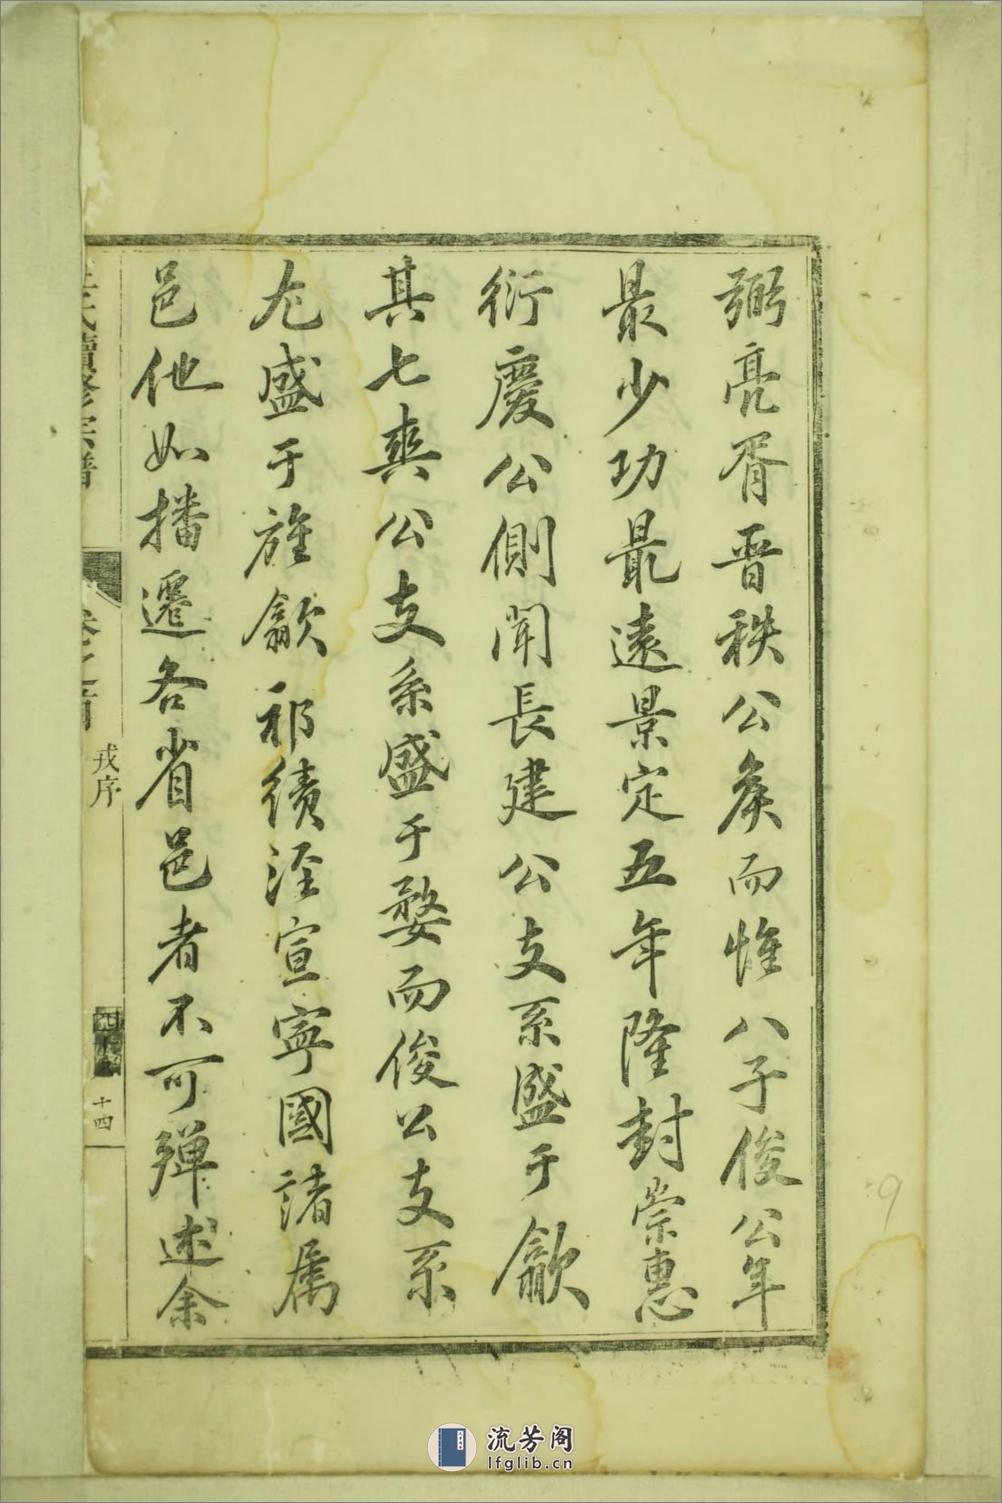 弼亮胥晋秩公矦而惟八子俊公年
最少功最遠景定五年隆封崇惠
衍慶公側聞長建公支系盛于歙
其七爽公支系盛于婺而俊公支系
尤盛于旌歙祁績涇宣寧國諸属
邑他如播遷各省邑者不可殫述余
氏續修宗譜
卷之首
戎序
十四
9
流芳阁
lfglib.cn